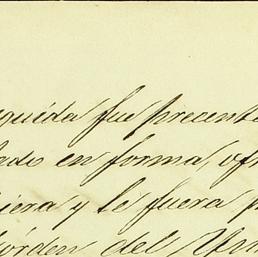 eguida fue precent
ado en forma, ofr
iera y le fuera p
órden del